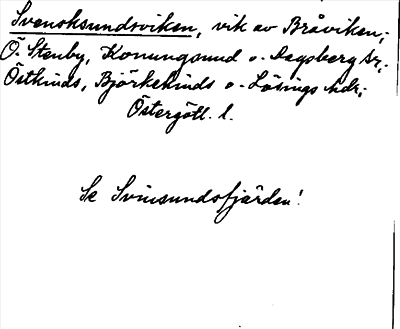 Svensksundsviken, vik av Bråviken,
Ö. Stenby, Konungsund o. Dagsberg sr,
Östkinds, Björkekinds o. Lösings hdr,
Östergötl. l.
Se Svinsundsfjärden!